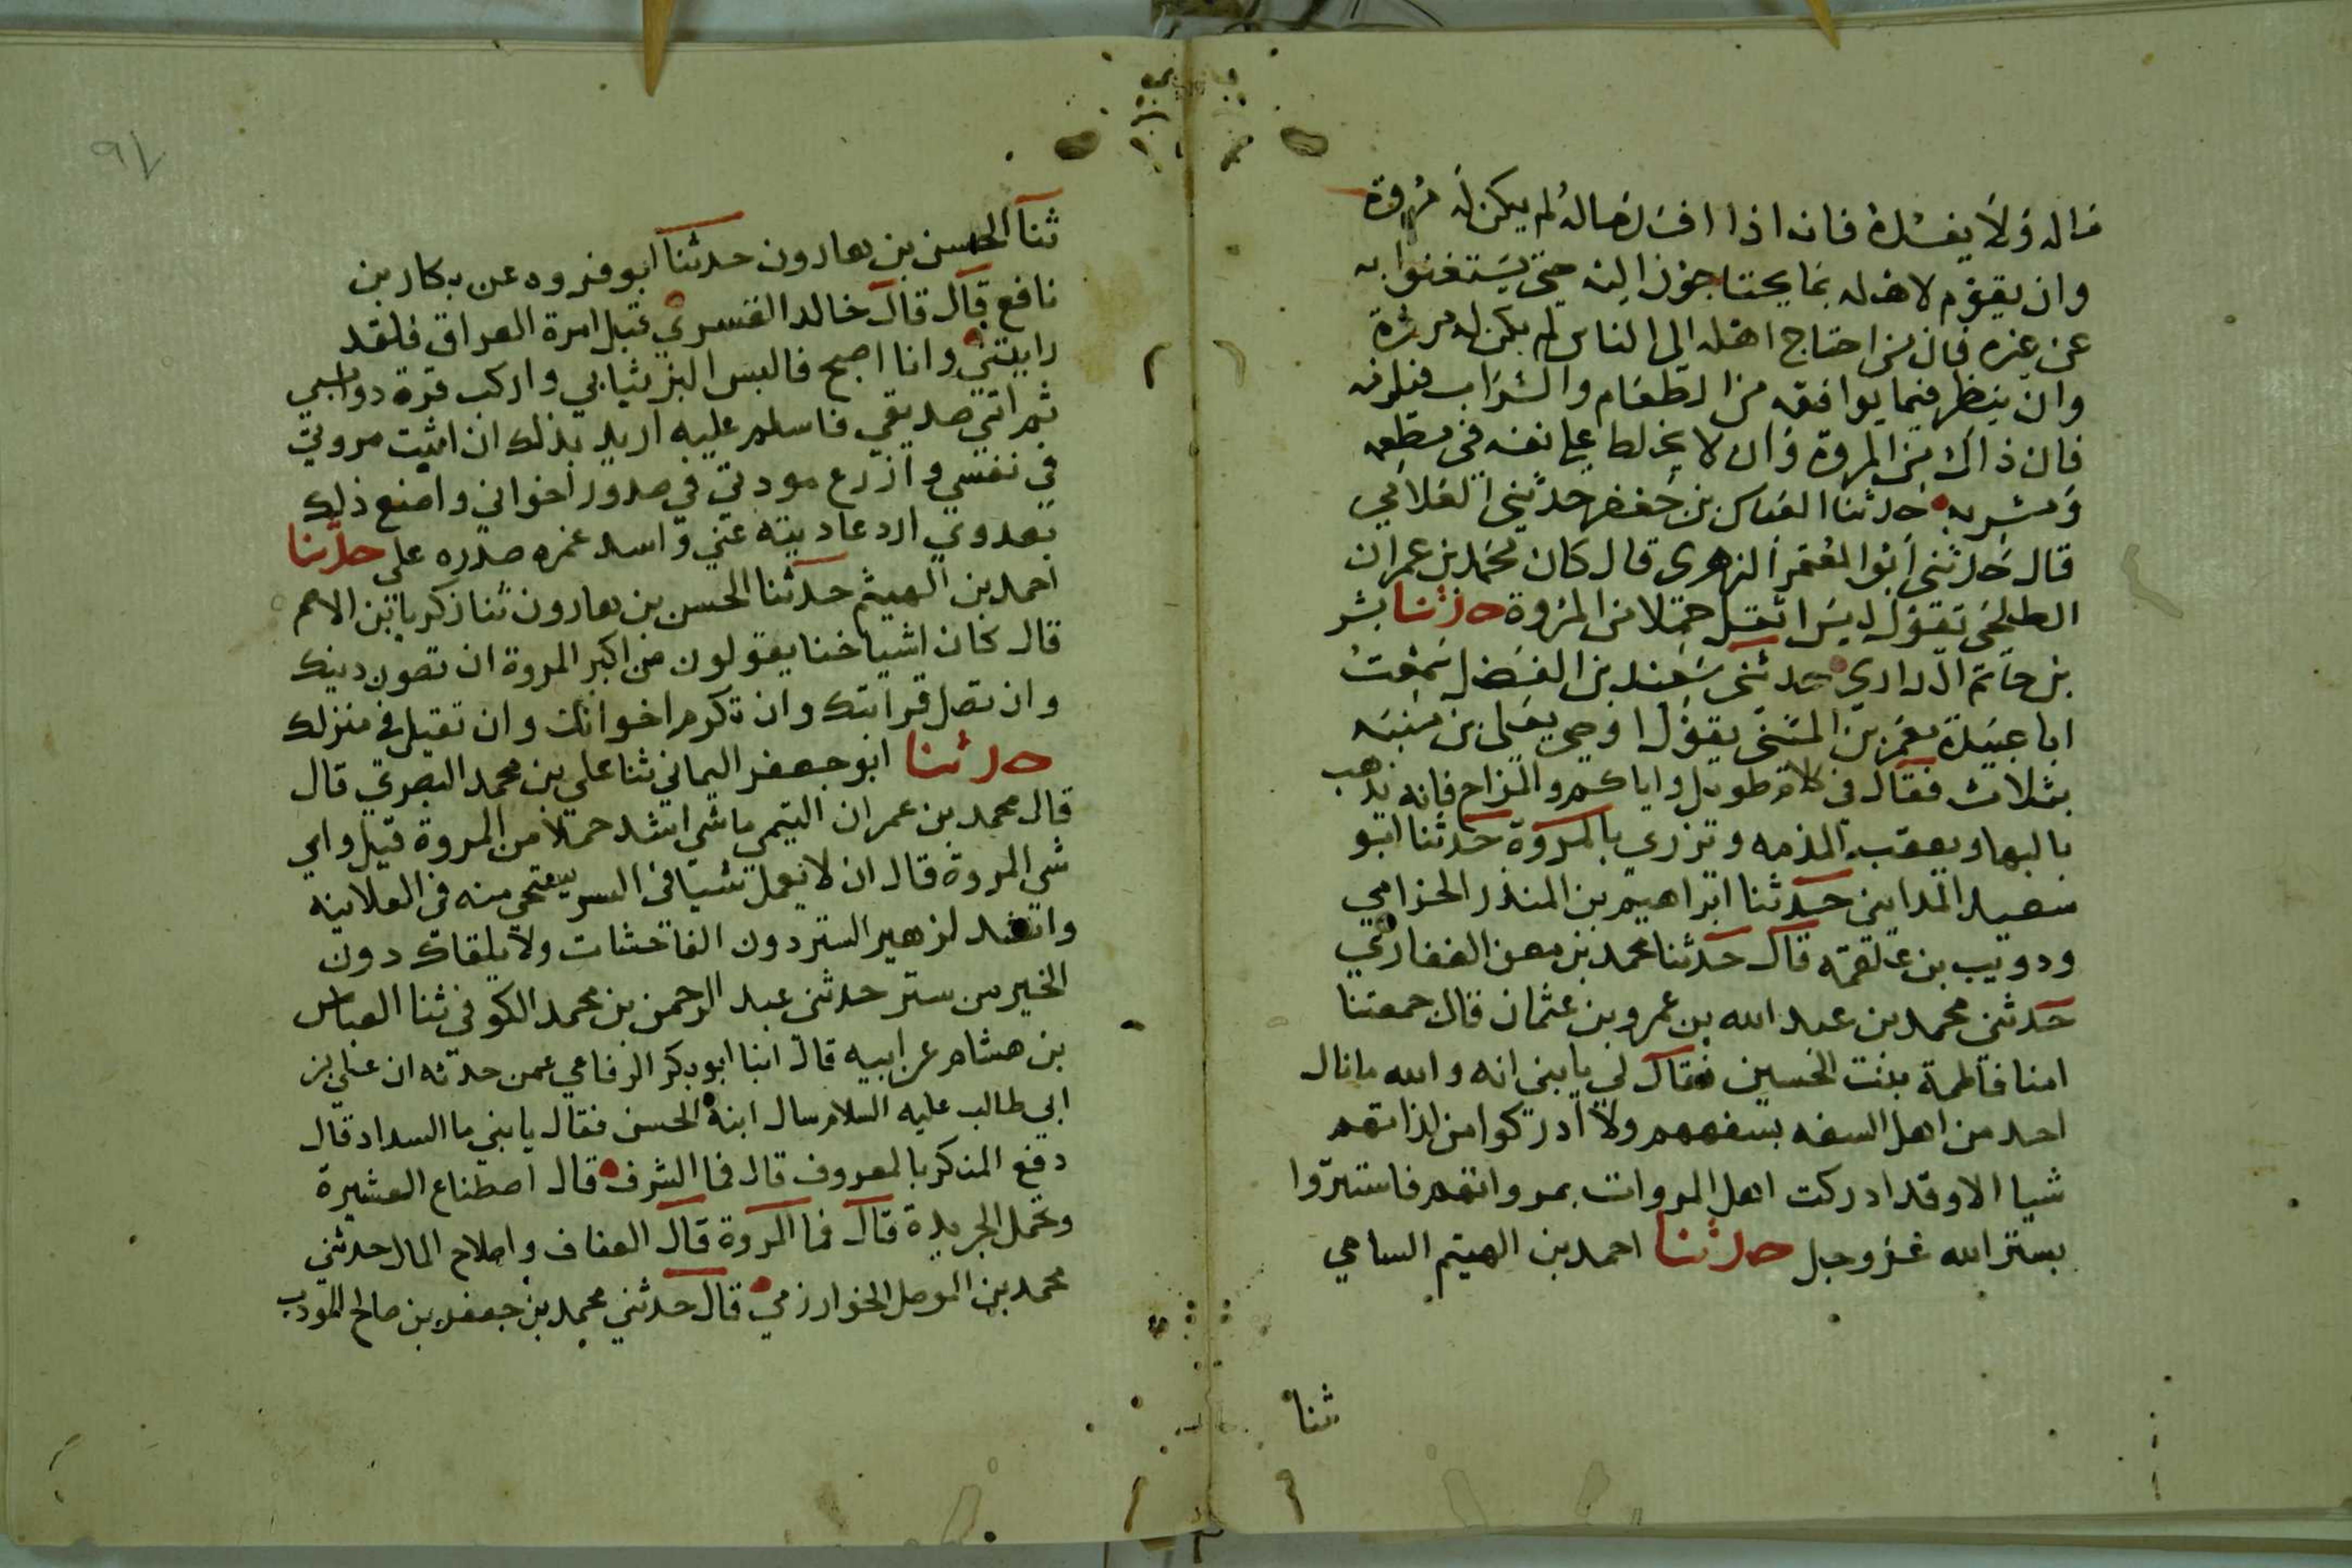 ماله ولا يفسده فانه اذا افسد ماله لم يكن له مروة
وان يقوم لاهله بما يحتاجون اليه حتى يستغنوا به
عن غيره فان من احتاج اهله الى الناس لم يكن له مروة
وان ينظر فيما يوافقه من الطعام والشراب فيلزمه
فان ذاك من المروة وان لا يخلط على نفسه في مطعمه
ومشربه حدثنا العباس بن جعفر حدثني الغلابي
قال حدثني ابو المعتمر الزهري قال كان محمد بن عمران
الطلحي يقول ليس اثقل حملا من المروة حدثنا بشر
بن حاتم الداري حدثني سعيد بن الفضل سمعت
ابا عبيدة معمر بن المثنى يقول اوصى يعلى بن منبه
بثلاث فقال في كلام طويل واياكم والمزاح فانه يذهب
بالبها ويعقب المذمه وتزري بالمروة حدثنا ابو
سعيد المدايني حدثنا ابراهيم بن المنذر الحزامي
ودويب بن علقمه قال حدثنا محمد بن معن الغفاري
حدثني محمد بن عبد الله بن عمرو بن عثمان قال جمعتنا
امنا فاطمة بنت الحسين فقال لي يا بني انه والله ما نال
احد من اهل السفه بسفههم ولا ادركوا من لذاتهم
شيا الا وقد ادركت اهل المروات بمرواتهم فاستتروا
بستر الله عز وجل حدثنا احمد بن الهيثم السامي
ثنا
٩٧
ثنا الحسن بن هارون حدثنا ابو فروه عن بكار بن
نافع قال قال خالد القسري قبل امرة العراق فلقد
رايتني وانا اصبح فالبس البز ثيابي واركب فره دوابي
ثم اتي صديقي فاسلم عليه اريد بذلك ان اثبت مروتي
في نفسي وازرع مودتي في صدور اخواني واصنع ذلك
بعدوي ارد عاديته عني واسد غمره صدره علي حدثنا
احمد بن الهيثم حدثنا الحسن بن هارون ثنا زكريا بن الاصم
قال كان اشياخنا يقولون من اكبر المروة ان تصون دينك
وان تصل قرابتك وان تكرم اخوانك وان تقيل في منزلك
حدثنا ابو جعفر اليماني ثنا علي بن محمد البصري قال
قال محمد بن عمران التيمي ما شي اشد حملا من المروة قيل واي
شي المروة قال ان لا تعمل شيا في السر يستحي منه في العلانيه
وانشد لزهير الستر دون الفاحشات ولا يلقاك دون
الخير من ستر حدثني عبد الرحمن بن محمد الكوفي ثنا العباس
بن هشام عن ابيه قال ابنا ابو بكر الرفاعي عمن حدثه ان علي بن
ابي طالب عليه السلام سال ابنه الحسن فقال يا بني ما السداد قال
دفع المنكر بالمعروف قال فما الشرف قال اصطناع العشيرة
وتحمل الجريدة قال فما المروة قال العفاف واصلاح المال حدثني
محمد بن الموصل الخوارزمي قال حدثني محمد بن جعفر بن صالح المودب